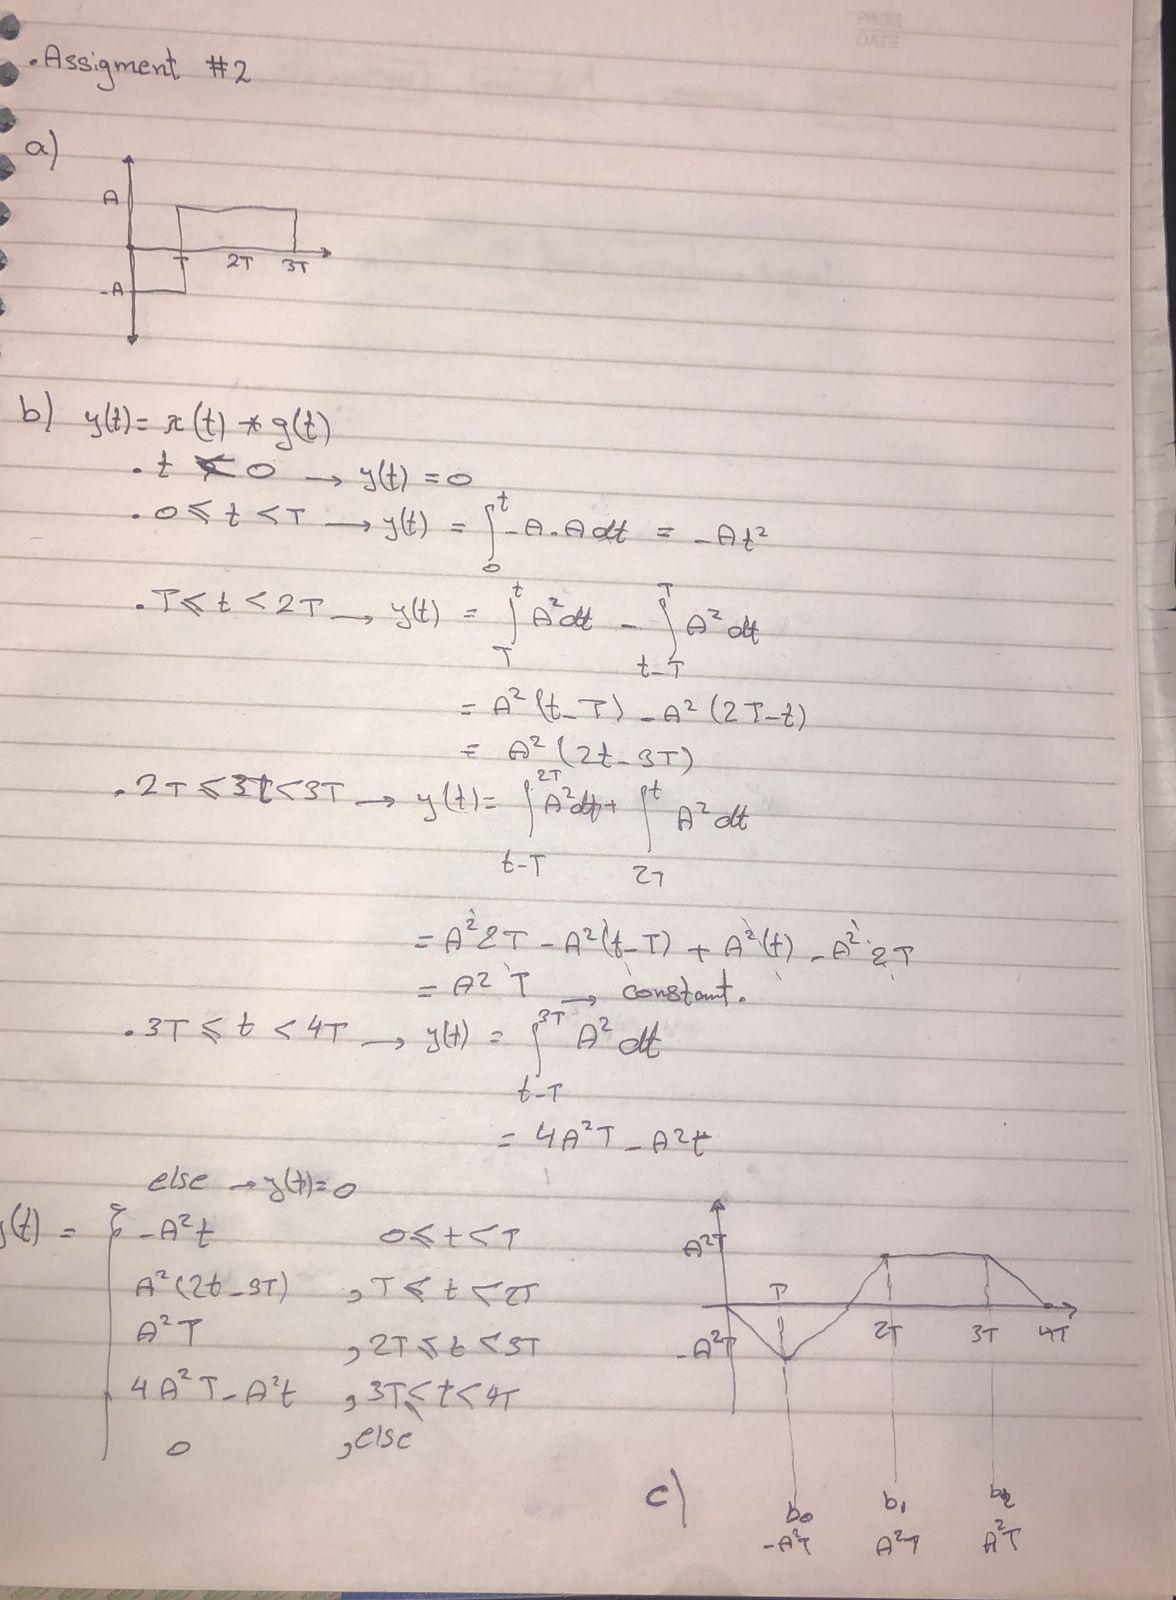 . Assigment #2
a)
A
T 2T 3T
-A
b) y(t) = x(t) * g(t)
. t < 0 → y(t) = 0
. 0 ≤ t < T → y(t) = ∫₀ᵗ -A.A dt = -At²
. T ≤ t < 2T → y(t) = ∫_T^t A² dt - ∫_{t-T}^T A² dt
= A² (t-T) - A² (2T-t)
= A² (2t-3T)
. 2T ≤ 3t < 3T → y(t) = ∫_{t-T}^{2T} A² dt + ∫_{2T}^t A² dt
= A² 2T - A² (t-T) + A² (t) - A² 2T
= A² T → constant.
. 3T ≤ t < 4T → y(t) = ∫_{t-T}^{3T} A² dt
= 4A²T - A²t
else → y(t) = 0
y(t) = { -A²t 0 ≤ t < T
A² (2t-3T) , T ≤ t < 2T
A²T , 2T ≤ t < 3T
4A²T - A²t , 3T ≤ t < 4T
0 , else
A²T
T
2T 3T 4T
-A²T
c)
b₀ b₁ b₂
-A²T A²T A²T